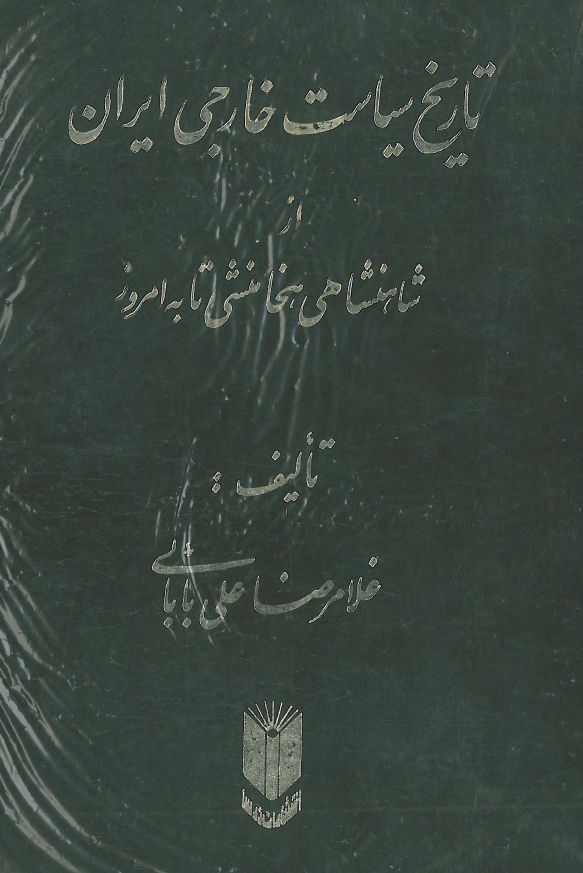 تاریخ سیاست خارجی ایران
از
شاهنشاهی هخامنشی تا به امروز
تألیف :
غلامرضا علی بابائی